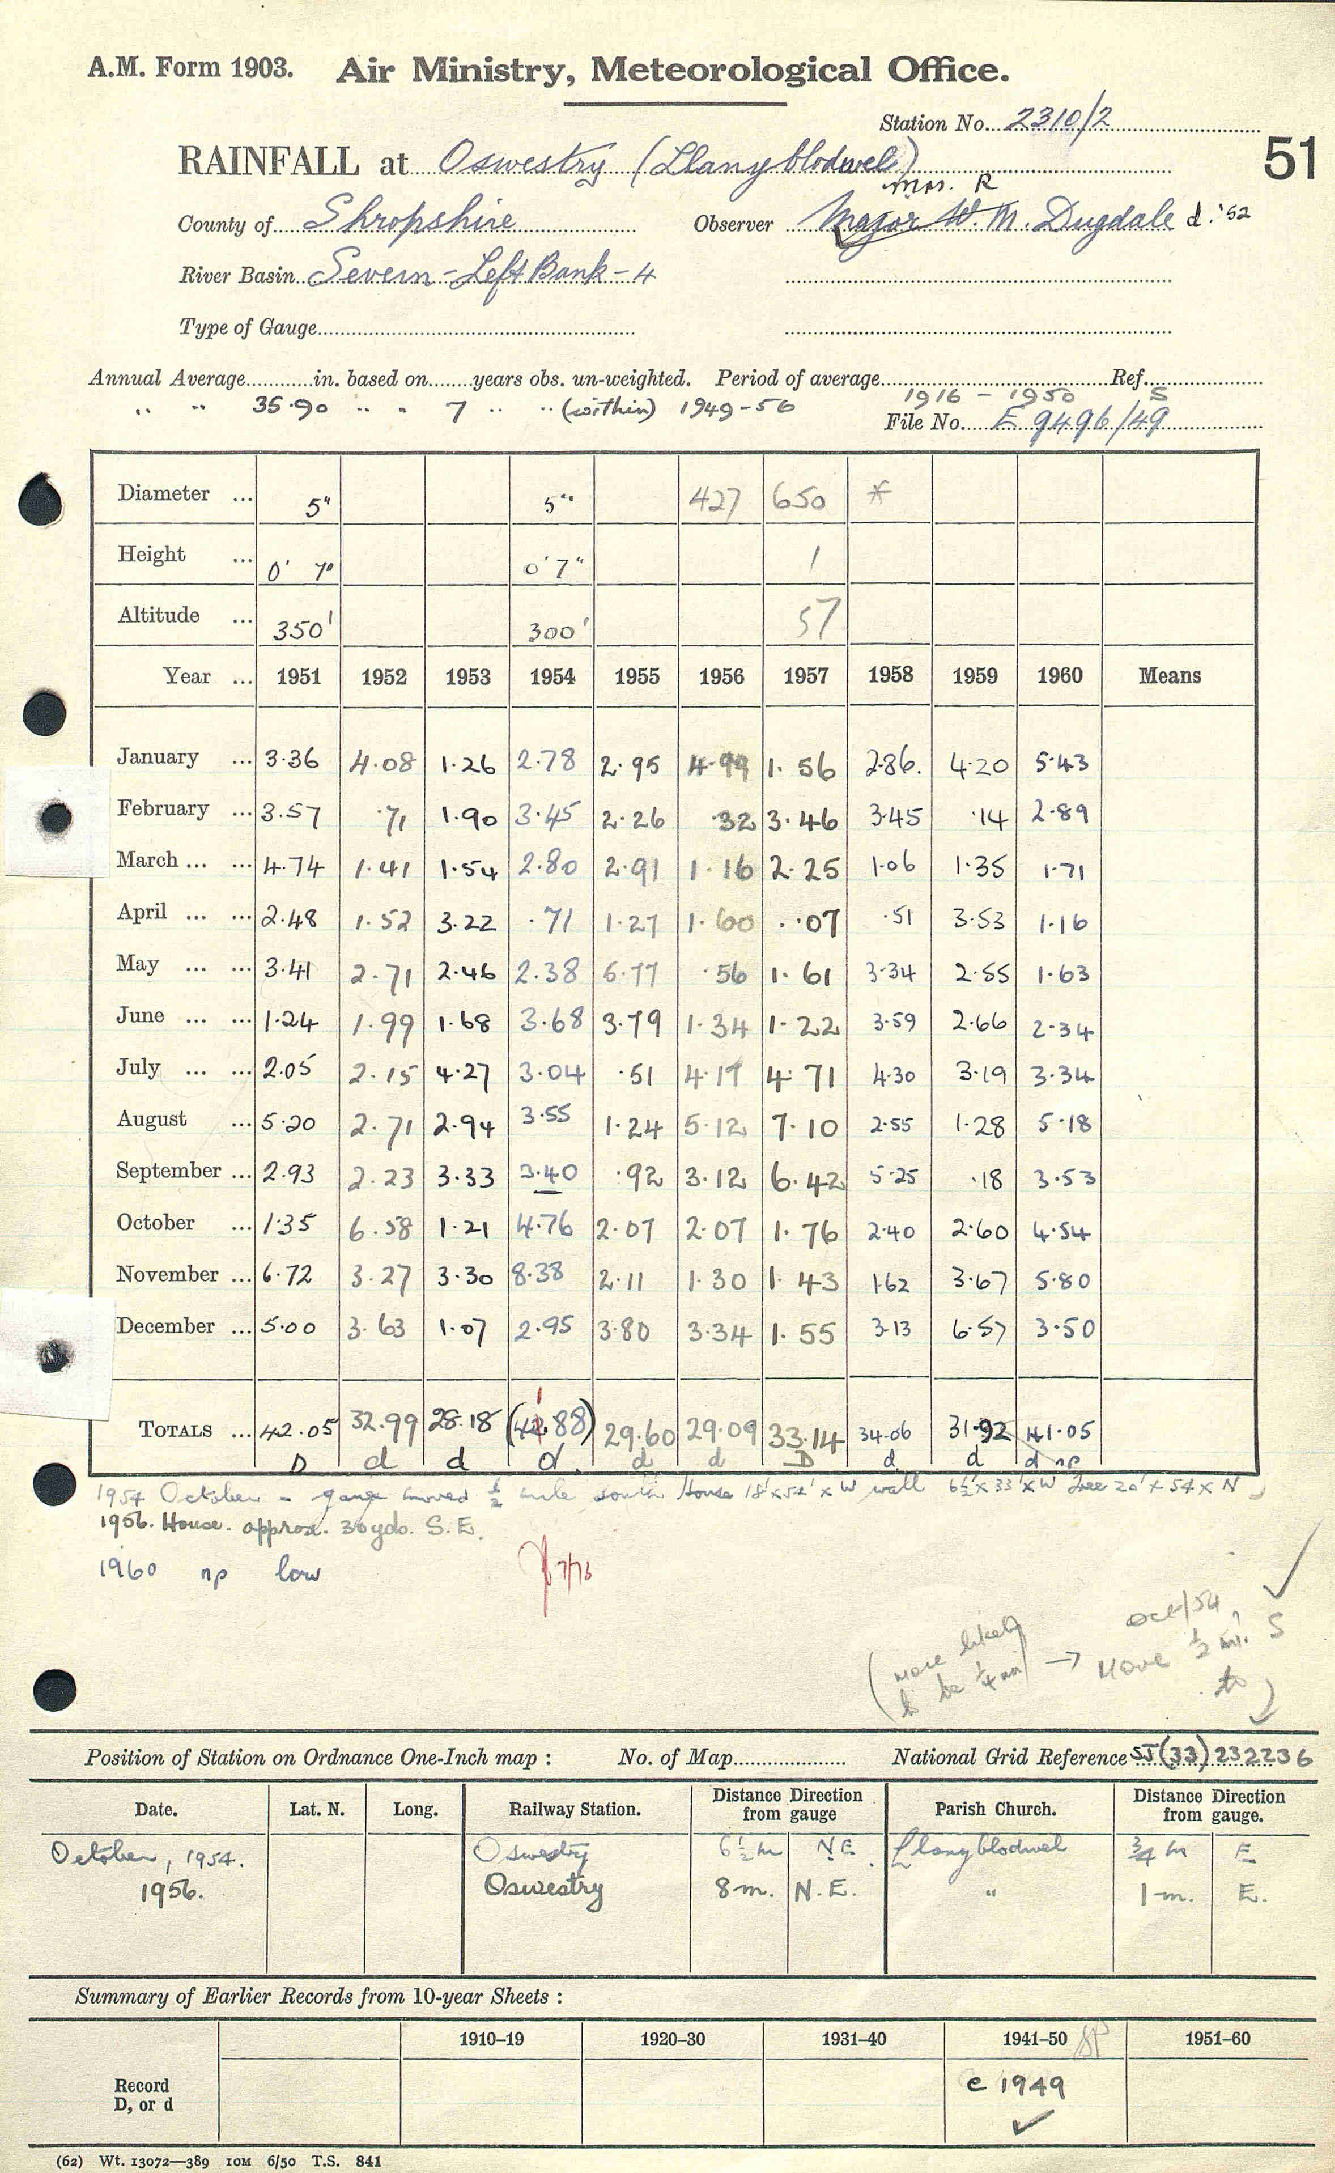 A.M. Form 1903. Air Ministry, Meteorological Office.
Station No. 2310/2
51
RAINFALL at Oswestry (Llanyblodwel)
Mrs. R
County of Shropshire Observer Major W. M. Dugdale d. '52
River Basin Severn - Left Bank - 4
Type of Gauge
Annual Average in. based on years obs. un-weighted. Period of average 1916 - 1950 Ref. S
" " 35.90 " " 7 " " (within) 1949-56
File No. E 9496/49
Diameter ... 5" 5" 427 650 *
Height ... 0' 7" 0' 7" 1
Altitude ... 350' 300' 57
Year ... 1951 1952 1953 1954 1955 1956 1957 1958 1959 1960 Means
January ... 3.36 4.08 1.26 2.78 2.95 4.99 1.56 2.86 4.20 5.43
February ... 3.57 .71 1.90 3.45 2.26 .32 3.46 3.45 .14 2.89
March ... ... 4.74 1.41 1.54 2.80 2.91 1.16 2.25 1.06 1.35 1.71
April ... ... 2.48 1.52 3.22 .71 1.27 1.60 .07 .51 3.53 1.16
May ... ... 3.41 2.71 2.46 2.38 5.77 .56 1.61 3.34 2.55 1.63
June ... ... 1.24 1.99 1.68 3.68 3.79 1.34 1.22 3.59 2.66 2.34
July ... ... 2.05 2.15 4.27 3.04 .51 4.17 4.71 4.30 3.19 3.34
August ... 5.20 2.71 2.94 3.55 1.24 5.12 7.10 2.55 1.28 5.18
September ... 2.93 2.23 3.33 3.40 .92 3.12 6.42 5.25 .18 3.53
October ... 1.35 6.58 1.21 4.76 2.07 2.07 1.76 2.40 2.60 4.54
November ... 6.72 3.27 3.30 8.38 2.11 1.30 1.43 1.62 3.67 5.80
December ... 5.00 3.63 1.07 2.95 3.80 3.34 1.55 3.13 6.57 3.50
TOTALS ... 42.05 32.99 28.18 (41.88) 29.60 29.09 33.14 34.06 31.92 41.05
D d d d. d d D d d d np
1954 October - gauge moved ½ mile south House 18'x54'xW wall 6½'x33'xW Tree 20'x54xN
1956. House. approx. 30 yds. S.E.
1960 np low
7/73
Oct/54
(more likely to be ¼ mi → Move ½ mi. S to)
Position of Station on Ordnance One-Inch map : No. of Map National Grid Reference SJ(33)232236
Date. Lat. N. Long. Railway Station. Distance Direction from gauge Parish Church. Distance Direction from gauge.
October, 1954. Oswestry 6½ m N.E. Llanyblodwel ¾ m E
1956. Oswestry 8 m. N.E. " 1 m. E.
Summary of Earlier Records from 10-year Sheets :
1910–19 1920–30 1931–40 1941–50 1951–60
Record D, or d c 1949
(62) Wt. 13072—389 10M 6/50 T.S. 841